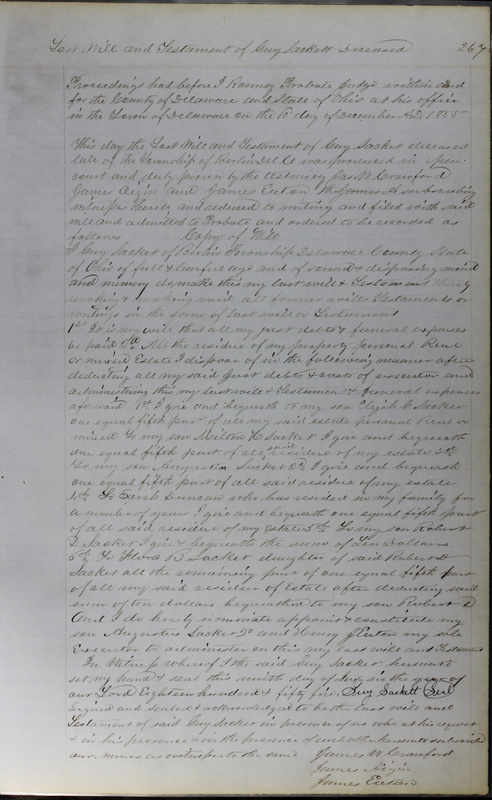 Last Will and Testament of Guy Sackett Deceased 267
Proceedings had before J Ranney Probate Judge within and
for the County of Delaware and State of Ohio at his office
in the Town of Delaware on the 10 day of December AD 1855
This day the Last Will and Testament of Guy Sacket deceased
late of the Township of Berlin Del Co was produced in open
court and duly proven by the testimony Jas W Crawford
James and James Eaton the subscribing
witness thereto and reduced to writing and filed with said
will and admitted to Probate and ordered to be recorded as
follows Copy of Will
I Guy Sacket of Berlin Township Delaware County State
of Ohio of full & lawful age and of sound & disposing mind
and memory do make this my last will & Testament hereby
revoking & making void all former wills Testaments or
writings in the form of last will or Testament
1st It is my will that all my just debts & funeral expenses
be paid 2d All the residue of my property personal Real
or mixed Estate I dispose of in the following manner after
deducting all my said just debts & costs of executor and
administering this my last will & Testament & funeral expenses
aforesaid 1st I give and bequeath to my son Elijah C Sacket
one equal fifth part of all my said estate personal Real or
mixed To my son Milton H Sacket I give and bequeath
one equal fifth part of all said residue of my estate 3d
To my son Augustus Sacket I give and bequeath
one equal fifth part of all said residue of my estate
4th To Sarah Duncan who has resided in my family for
a number of years I give and bequeath one equal fifth part
of all said residue of my estate 5th To my son Robert
D Sacket I give & bequeath the sum of Ten Dollars
6th To B Sacket daughter of said Robert D
Sacket all the remaining part of one equal fifth part
of all my said residue of Estate after deducting said
sum of ten dollars bequeathed to my son Robert D
And I do hereby nominate appoint & constitute my
son Augustus Sacket and Henry J Eaton my sole
Executor to administer on this my last will and Testament
In Witness whereof I the said Guy Sacket hereunto
set my hand & seal this ninth day of July in the year of
our Lord Eighteen hundred & fifty five Guy Sackett Seal
Signed and sealed & acknowledged to be the last will and
Testament of said Guy Sacket in presence of us who at his request
& in his presence & in the presence of each other hereunto subscribed
our names as witnesses to the same James W Crawford
James
James Eaton